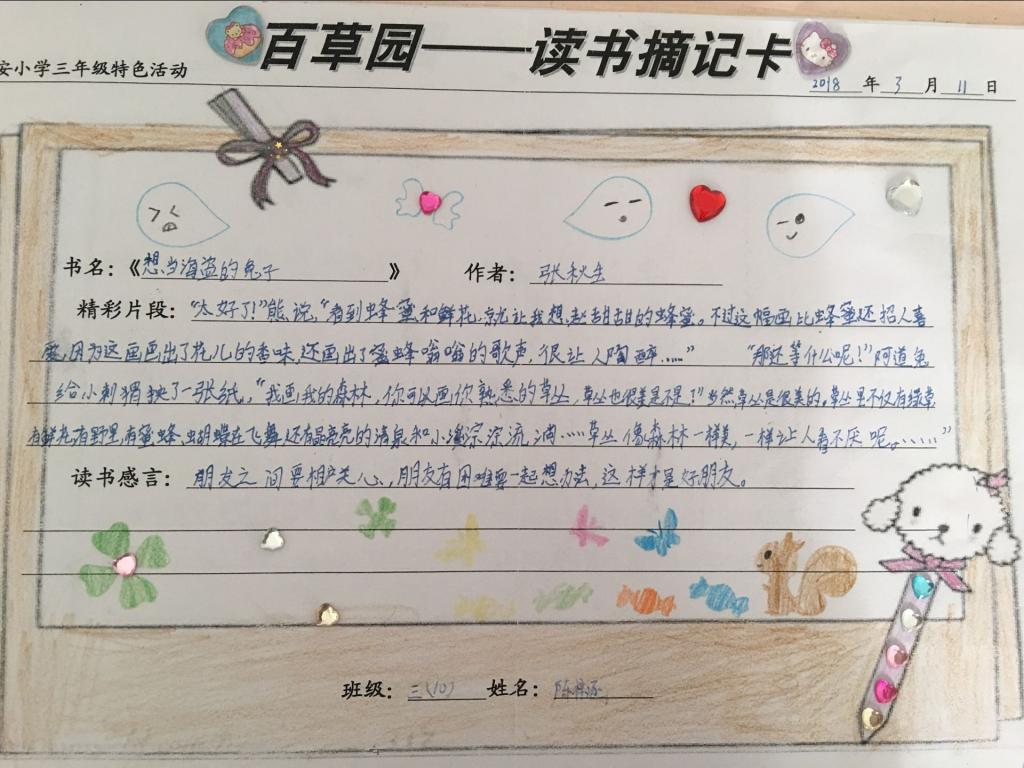 百草园——读书摘记卡
安小学三年级特色活动
2018 年 3 月 11 日
书名：《想当海盗的兔子》 作者：张秋生
精彩片段：“太好了！”熊说，“看到蜂蜜和鲜花，就让我想起甜甜的蜂蜜。不过这幅画比蜂蜜还招人喜
爱，因为这画画出了花儿的香味，还画出了蜜蜂嗡嗡的歌声，很让人陶醉……” “那还等什么呢！”阿道兔
给小刺猬换了一张纸，“我画我的森林，你可以画你熟悉的草丛，草丛也很美是不是？”当然草丛是很美的。草丛里不仅有绿草，
有鲜花，有野果，有蜜蜂、蝴蝶在飞舞，还有晶亮亮的清泉和小溪淙淙流淌……草丛像森林一样美，一样让人看不厌呢。……”
读书感言：朋友之间要相互关心，朋友有困难要一起想办法，这样才是好朋友。
班级：三（10） 姓名：陈